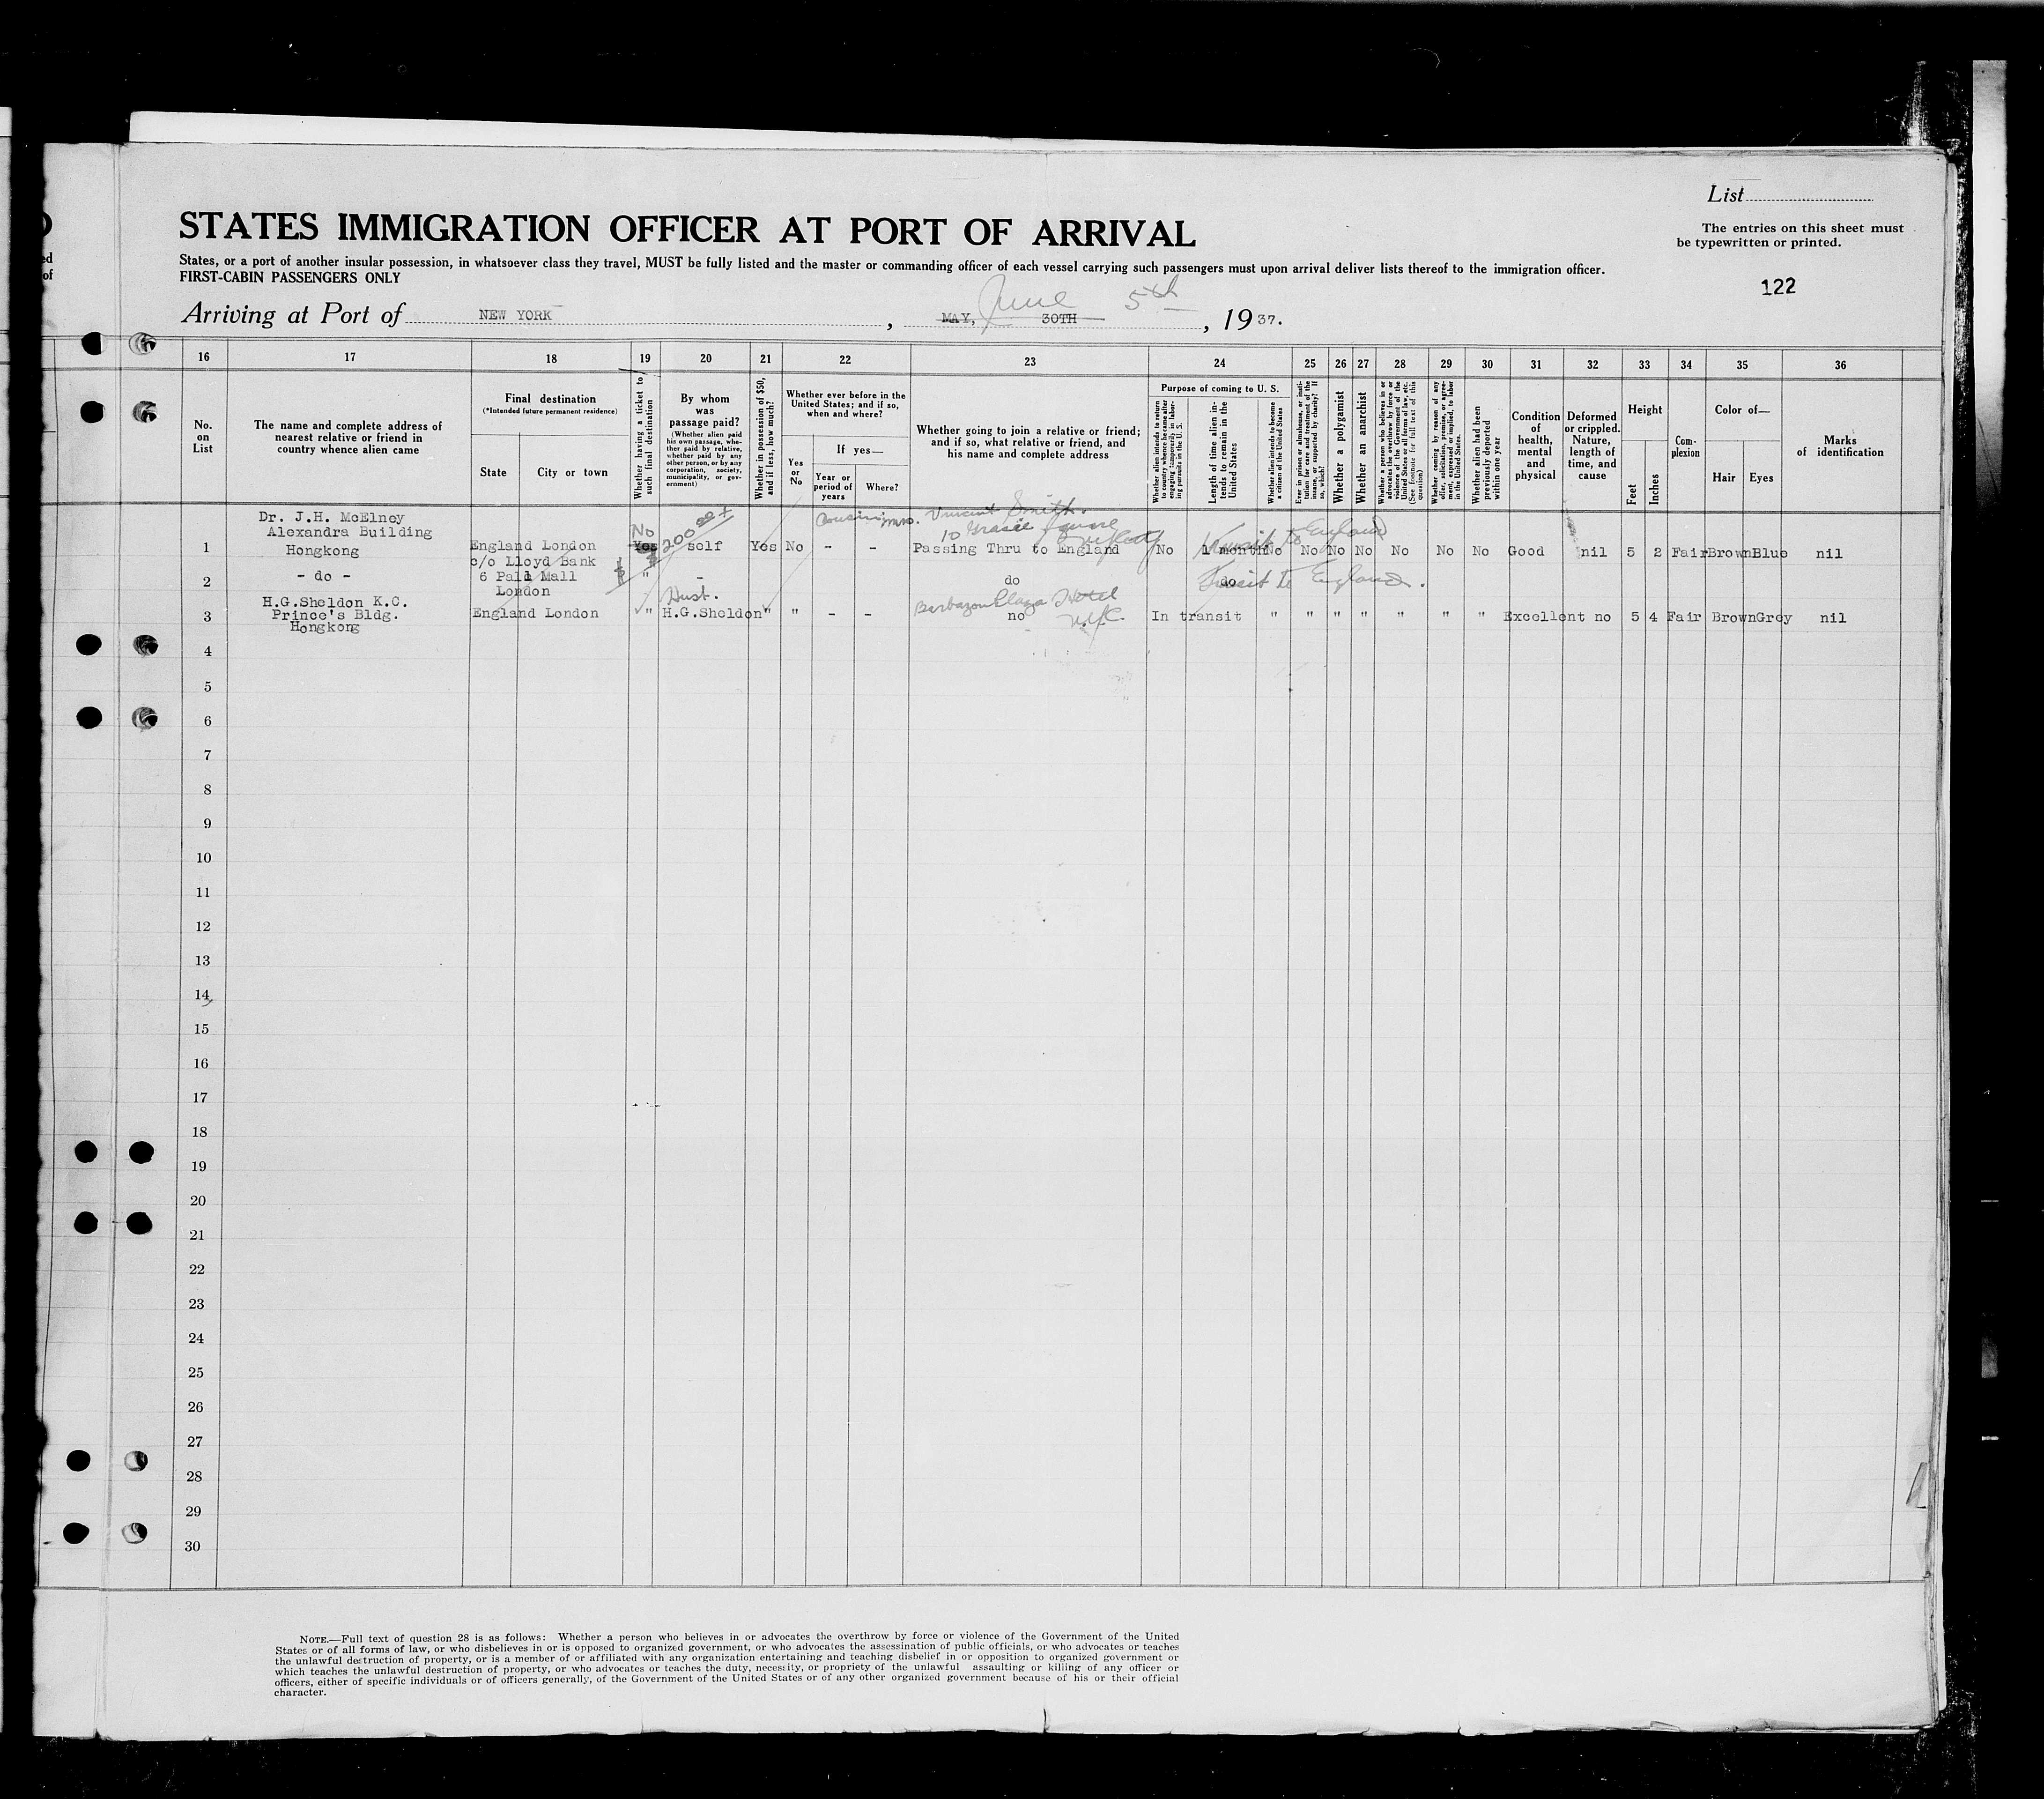 List
The entries on this sheet must
be typewritten or printed.
STATES IMMIGRATION OFFICER AT PORT OF ARRIVAL
States, or a port of another insular possession, in whatsoever class they travel, MUST be fully listed and the master or commanding officer of each vessel carrying such passengers must upon arrival deliver lists thereof to the immigration officer.
FIRST-CABIN PASSENGERS ONLY
122
June 5th
Arriving at Port of NEW YORK, MAY, 30TH, 1937.
16 17 18 19 20 21 22 23 24 25 26 27 28 29 30 31 32 33 34 35 36
No. on List
The name and complete address of nearest relative or friend in country whence alien came
Final destination
(*Intended future permanent residence)
State
City or town
Whether having a ticket to such final destination
By whom was passage paid?
(Whether alien paid his own passage, whether paid by relative, whether paid by any other person, or by any corporation, society, municipality, or government)
Whether in possession of $50, and if less, how much?
Whether ever before in the United States; and if so, when and where?
Yes or No
If yes—
Year or period of years
Where?
Whether going to join a relative or friend; and if so, what relative or friend, and his name and complete address
Purpose of coming to U. S.
Whether alien intends to return to country whence he came after engaging temporarily in laboring pursuits in the U. S.
Length of time alien intends to remain in the United States
Whether alien intends to become a citizen of the United States
Ever in prison or almshouse, or institution for care and treatment of the insane, or supported by charity? If so, which?
Whether a polygamist
Whether an anarchist
Whether a person who believes in or advocates the overthrow by force or violence of the Government of the United States or all forms of law, etc. (See footnote for full text of this question)
Whether coming by reason of any offer, solicitation, promise, or agreement, expressed or implied, to labor in the United States.
Whether alien had been previously deported within one year
Condition of health, mental and physical
Deformed or crippled. Nature, length of time, and cause
Height
Feet
Inches
Complexion
Color of—
Hair Eyes
Marks of identification
Dr. J.H. McElney
Alexandra Building
Cousin: Mrs. Vincent Smith.
10 Gracie Square
No 200
Transit to England
1 Hongkong England London Yes self Yes No - - Passing Thru to England No 1 month No No No No No No No Good nil 5 2 Fair Brown Blue nil
c/o Lloyd Bank
2 - do - 6 Pall Mall " - do do Transit to England.
London
Hust.
H.G.Sheldon K.C.
Barbazon Plaza Hotel
N.Y.C.
3 Prince's Bldg. England London " H.G.Sheldon " " - - no In transit " " " " " " " Excellent no 5 4 Fair Brown Grey nil
Hongkong
4
5
6
7
8
9
10
11
12
13
14
15
16
17
18
19
20
21
22
23
24
25
26
27
28
29
30
NOTE.—Full text of question 28 is as follows: Whether a person who believes in or advocates the overthrow by force or violence of the Government of the United
States or of all forms of law, or who disbelieves in or is opposed to organized government, or who advocates the assassination of public officials, or who advocates or teaches
the unlawful destruction of property, or is a member of or affiliated with any organization entertaining and teaching disbelief in or opposition to organized government or
which teaches the unlawful destruction of property, or who advocates or teaches the duty, necessity, or propriety of the unlawful assaulting or killing of any officer or
officers, either of specific individuals or of officers generally, of the Government of the United States or of any other organized government because of his or their official
character.